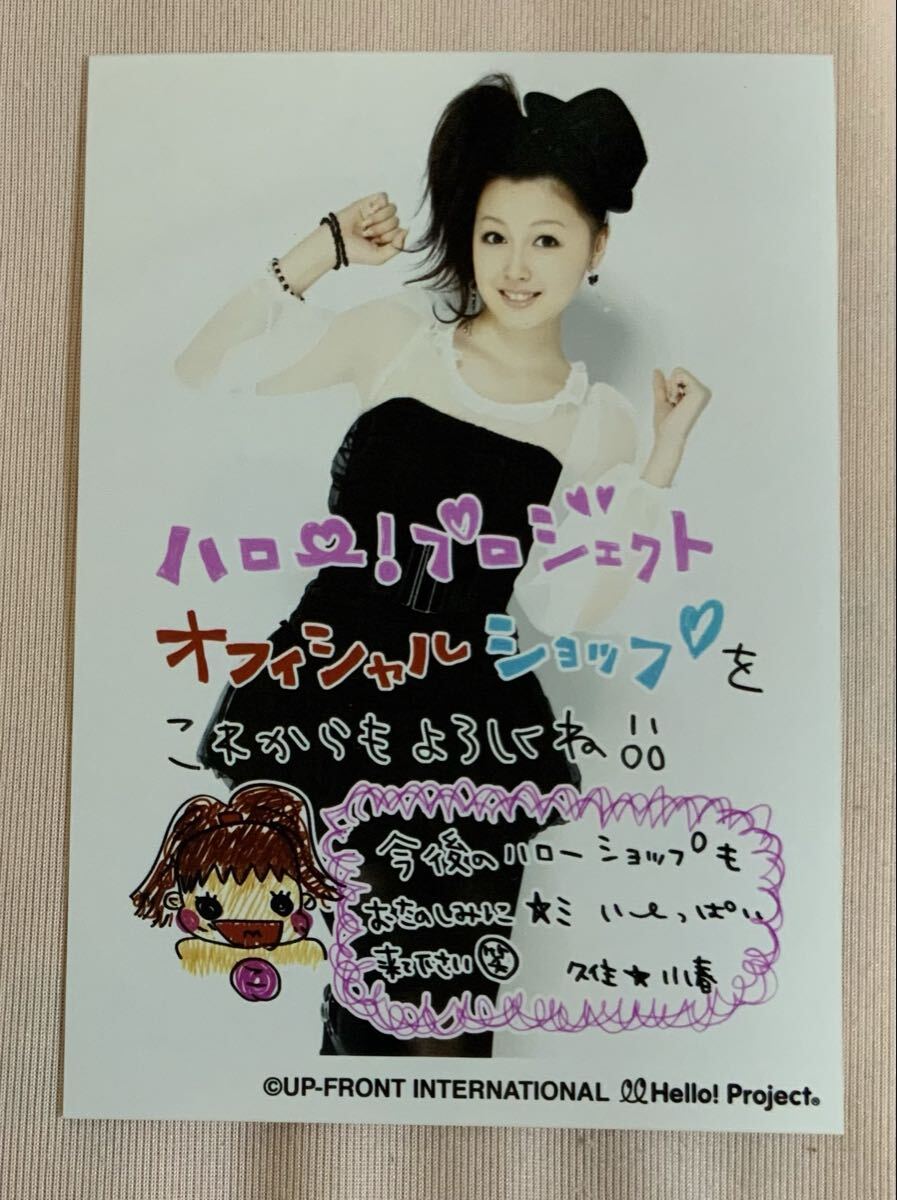 ハロー!プロジェクト
オフィシャルショップを
これからもよろしくね!!
今後のハローショップも
おたのしみに★ミ いーっぱい
来て下さい笑 久住★小春
こ
©UP-FRONT INTERNATIONAL Hello! Project®